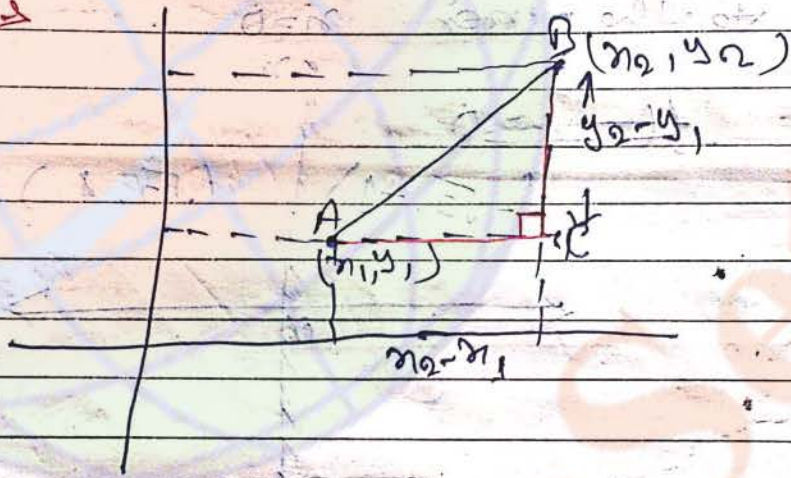 B (x₂, y₂)
y₂-y₁
A
C
(x₁, y₁)
x₂-x₁